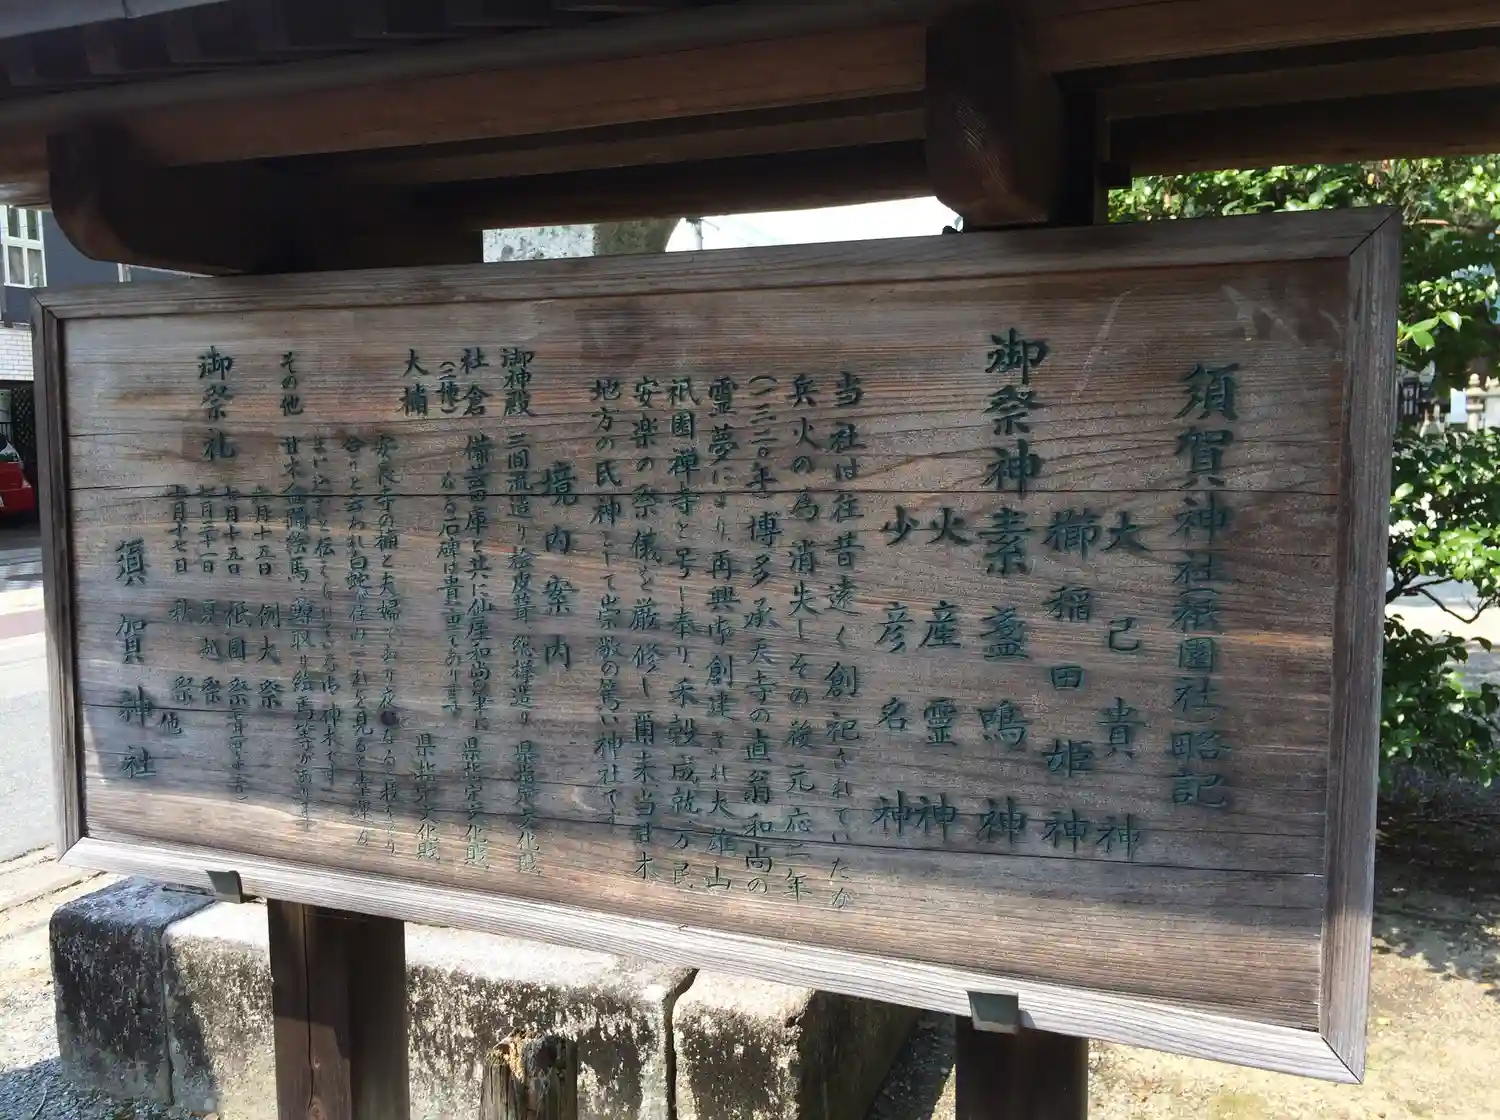 須賀神社(祇園社)略記
大己貴神
櫛稲田姫神
御祭神 素盞鳴神
火産霊神
少彦名神
当社は往昔遠く創祀されていたが
兵火の為消失しその後元応二年
(一三二〇年)博多承天寺の直翁和尚の
霊夢により再興市創建され大雄山
祇園禅寺と号し奉り禾穀成就万民
安楽の祭儀を厳修し爾来当甘木
地方の氏神として崇敬の篤い神社です
境内案内
御神殿 三間流造り桧皮葺総欅造り 県指定文化財
社倉 備蓄庫と共に仙厓和尚の筆に 県指定文化財
(二棟) なる石碑は貴重であります
大楠 県指定文化財
安長寺の楠と夫婦であり夜になると寄り
合うと云われ白蛇が住みこれを見ると幸運が
まいこむと伝えられている御神木です
その他 甘木盆踊絵馬、鯨取り絵馬等があります
御祭礼 六月十五日 例大祭
七月十五日 祇園祭
七月三十一日 夏越祭
十月十七日 秋祭 他
須賀神社